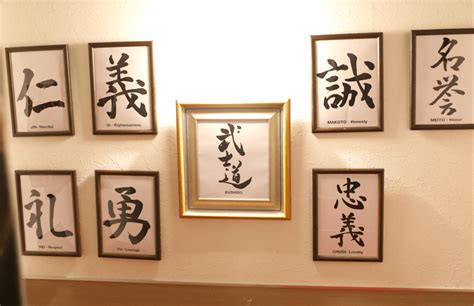 仁
JIN - Merciful
義
GI - Righteousness
武士道
BUSHIDO
誠
MAKOTO - Honesty
名誉
MEIYO - Honor
礼
REI - Respect
勇
YU - Courage
忠義
CHUGI - Loyalty